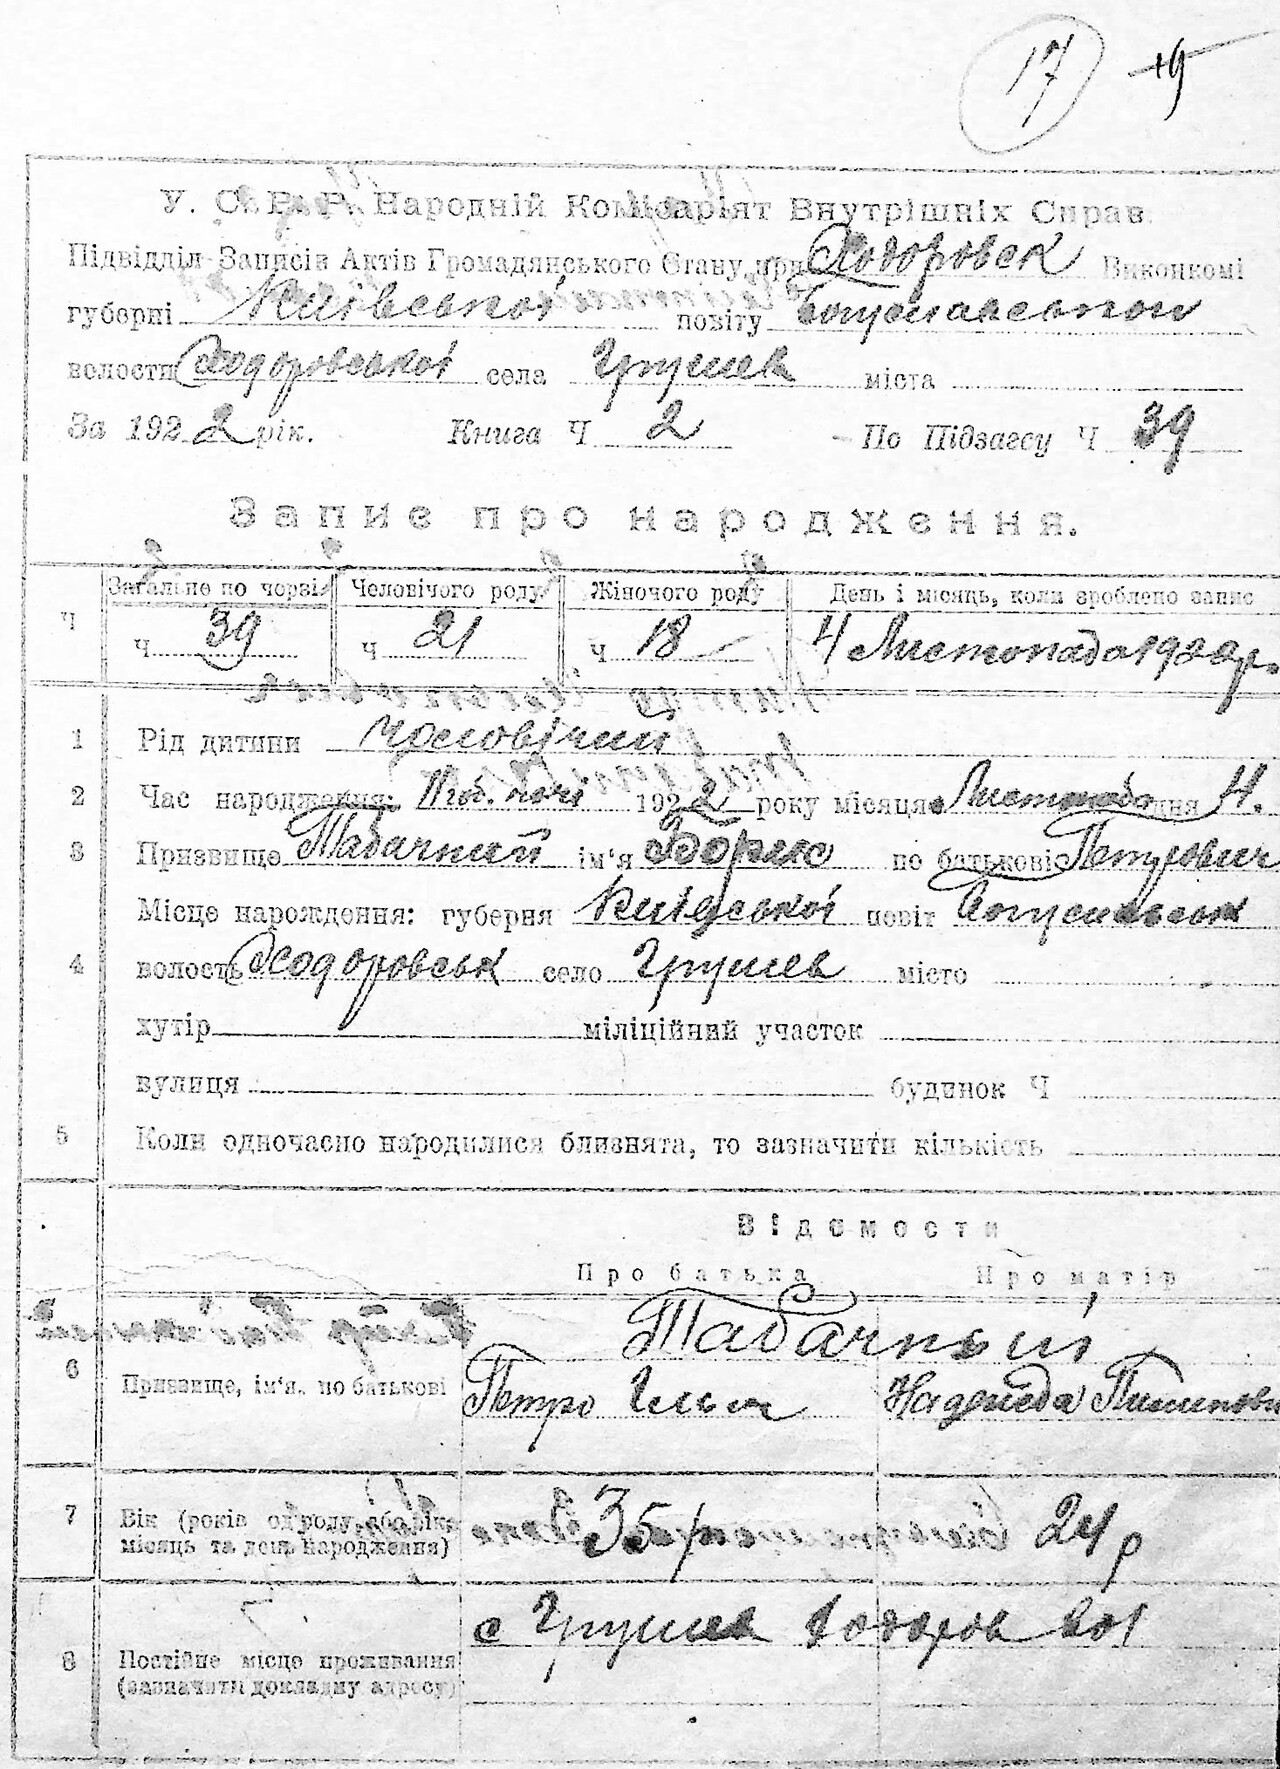 17 19
У. С. Р. Р. Народній Комісаріят Внутрішніх Справ
Підвідділ Записів Актів Громадянського Стану, при Ходоровск Виконкомі
губерні Київської повіту Богуславськои
волости Ходоровської села Грушев міста
За 1922 рік. Книга Ч 2 По Підзагсу Ч 39
Запис про народження.
Загальне по черзі Человічого роду Жіночого роду День і місяць, коли зроблено запис
Ч ч 39 ч 21 ч 18 4 Листопада 1922 р.
1 Рід дитини Чоловічий
2 Час народження: 11 год. ночі 1922 року місяця Листопада дня 4.
3 Призвище Табачний ім'я Борис по батькові Петрович
Місце нарождення: губерня Київської повіт Богуславськ
4 волость Ходоровськ село Грушев місто
хутір міліційний участок
вулиця будинок Ч
5 Коли одночасно народилися близнята, то зазначити кількість
Відомости
Про батька Про матір
Табачный
6 Призвище, ім'я, по батькові Петро Ильич Надежда
7 Вік (років од роду, або рік, 35 р 24 р
місяць та день народження)
с Грушев Ходоровскої
8 Постійне місце проживання
(зазначити докладну адресу)